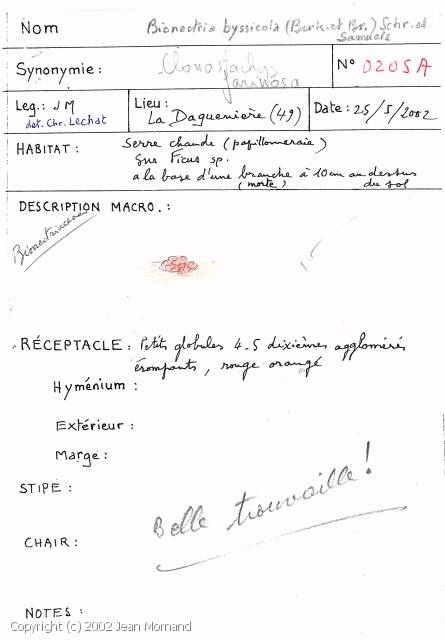 Nom Bionectria byssicola (Berk. et Br.) Schr. et
Samuels
Synonymie : Clonostachys
farinosa
N° 0205A
Leg.: JM
det. Chr. Lechat
Lieu :
La Daguenière (49)
Date : 25/5/2002
HABITAT : Serre chaude (papilloneraie)
sur Ficus sp.
a la base d'une branche à 10 cm au dessus
(morte) du sol
DESCRIPTION MACRO. :
Bionectriaceae
RÉCEPTACLE : Petits globules 4-5 dixièmes agglomérés
érompants, rouge orangé
Hyménium :
Extérieur :
Marge :
STIPE :
Belle trouvaille !
CHAIR :
NOTES :
Copyright (c) 2002 Jean Mornand